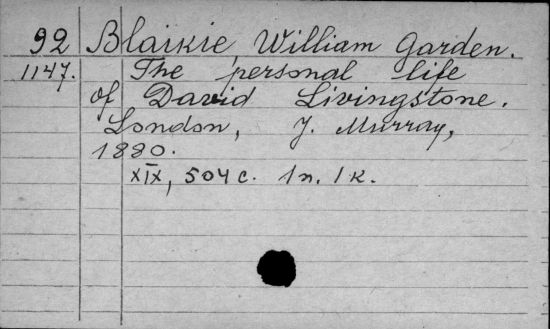 92 Blaikie, William Garden.
1147. The personal life
of David Livingstone.
London, J. Murray,
1880.
XIX, 504 c. 1 п. 1 к.